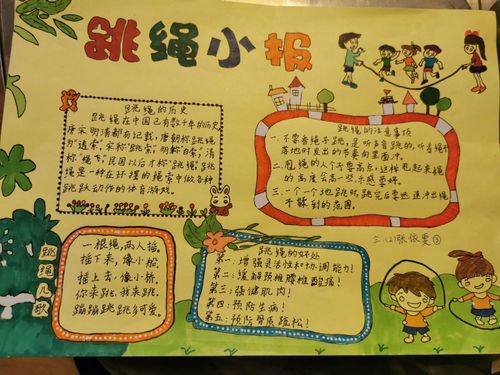 跳绳小报
跳绳的历史
跳绳在中国已有数千年的历史
唐宋明清都有记载，唐朝称跳绳
为"透索"，宋称"跳索"，明称"白索"，清
称"绳飞"，民国以后才称"跳绳"，跳
绳是一种在环摆的绳索中做各种
跳跃动作的体育游戏。
跳绳的注意事项
一、不要看绳子跳，是听声音跳的，听着绳子
落地时发出的节奏向里面冲。
二、甩绳的人个子要高点，这样甩起来绳
的高度会高一些，手感要好。
三、一个一个地跳时，跳完后要迅速冲出绳
子够到的范围。
跳绳儿歌
一根绳，两人摇，
摇下来，像小船，
摇上去，像小桥，
你来跳，我来跳，
蹦蹦跳跳多可爱。
跳绳的好处
第一：增强灵活性和协调能力！
第二：缓解颈椎腰椎酸痛！
第三：强健肌肉！
第四：预防生病！
第五：预防骨质疏松！
三.(2)张依雯③